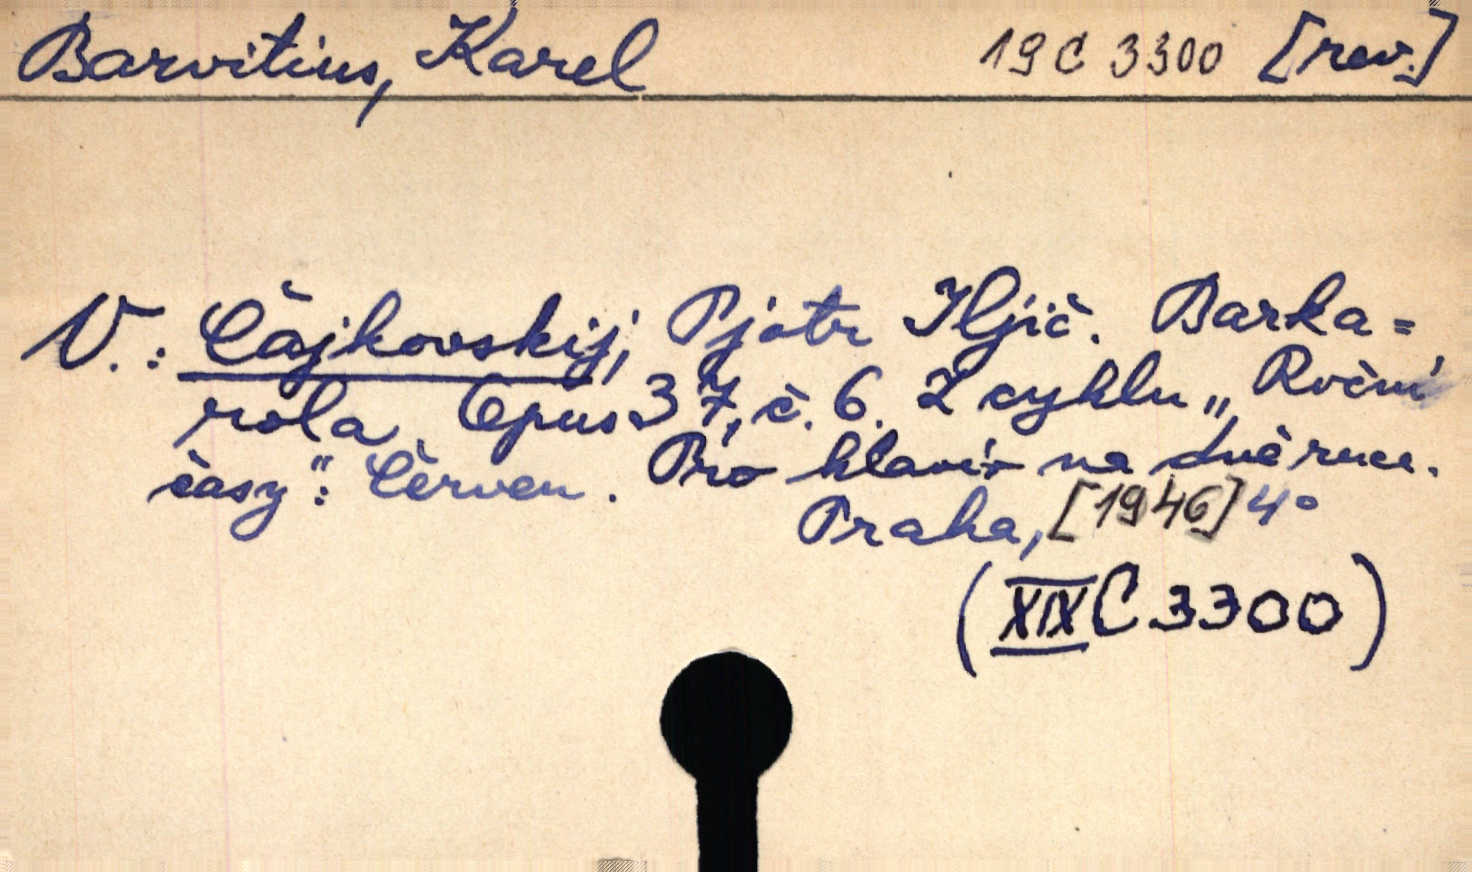 Barvitius, Karel 19 C 3300 [rev.]
V.: Čajkovskij, Pjotr Iljič. Barka=
rola. Opus 37, č. 6. Z cyklu „Roční
časy": Červen. Pro klavír na dvě ruce.
Praha, [1946] 4°
(XIX C 3300)